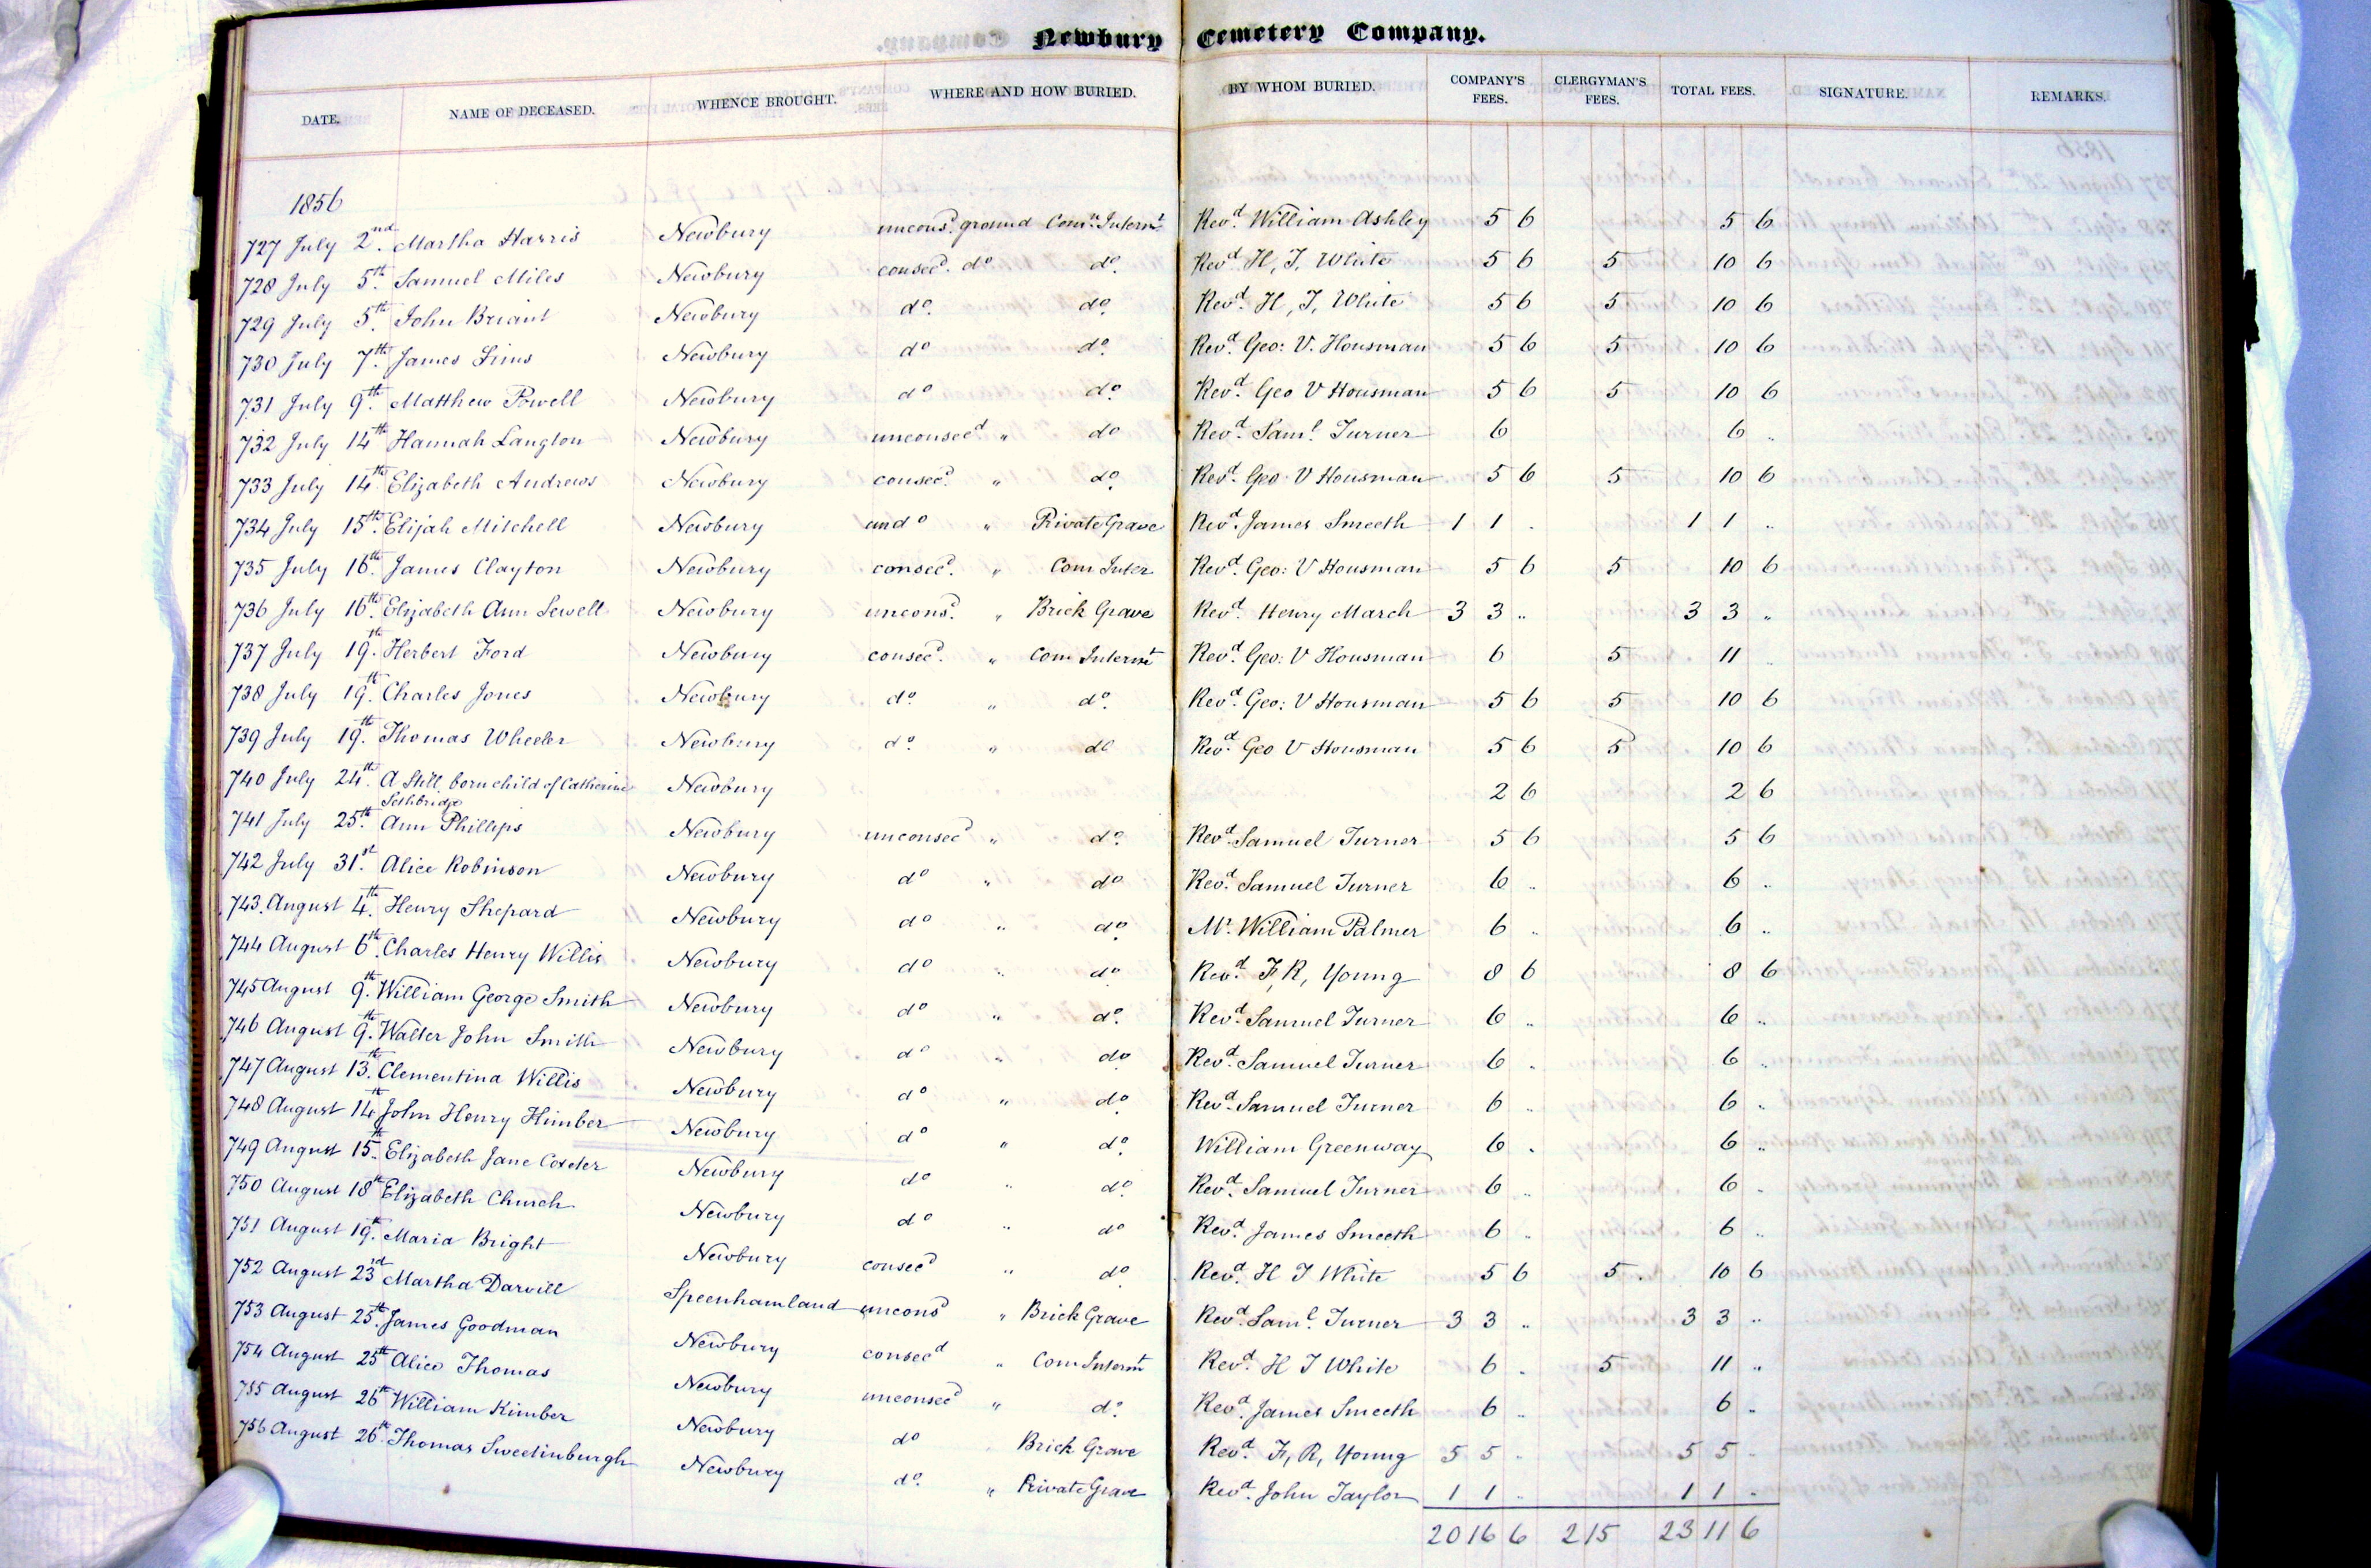 Newbury Cemetery Company.
DATE. NAME OF DECEASED. WHENCE BROUGHT. WHERE AND HOW BURIED. BY WHOM BURIED. COMPANY'S FEES. CLERGYMAN'S FEES. TOTAL FEES. SIGNATURE. REMARKS.
1856
727 July 2nd. Martha Harris Newbury uncons.d ground Comn. Intermt. Revd. William Ashley 5 6 5 6
728 July 5th. Samuel Miles Newbury consecd. do do. Revd. H, J, White 5 6 5 10 6
729 July 5th. John Briant Newbury do. do. Revd. H, J, White 5 6 5 10 6
730 July 7th. James Sims Newbury do do. Revd. Geo: V. Housman 5 6 5 10 6
731 July 9th. Matthew Powell Newbury do do. Revd. Geo V Housman 5 6 5 10 6
732 July 14th Hannah Langton Newbury unconsecd " do Revd. Saml. Turner 6 6 "
733 July 14th Elizabeth Andrews Newbury consecd. " do. Revd. Geo V Housman 5 6 5 10 6
734 July 15th. Elijah Mitchell Newbury un do " Private Grave Revd. James Smeeth 1 1 . 1 1 "
735 July 16th. James Clayton Newbury consecd. " Com Inter Revd. Geo: V Housman 5 6 5 10 6
736 July 16th. Elizabeth Ann Sewell Newbury unconsd. " Brick Grave Revd. Henry March 3 3 " 3 3 "
737 July 19th. Herbert Ford Newbury consecd. " Com Intermt Revd. Geo: V Housman 6 5 11 "
738 July 19th. Charles Jones Newbury do. " do. Revd. Geo: V Housman 5 6 5 10 6
739 July 19th. Thomas Wheeler Newbury do. " do Revd. Geo V Housman 5 6 5 10 6
740 July 24th. A Still born child of Catherine Newbury 2 6 2 6
Sethbridge
741 July 25th. Ann Phillips Newbury unconsecd " do. Revd. Samuel Turner 5 6 5 6
742 July 31st. Alice Robinson Newbury do " do Revd. Samuel Turner 6 " 6 "
743. August 4th. Henry Shepard Newbury do " do. Mr. William Palmer 6 " 6 "
744 August 6th. Charles Henry Willis Newbury do " do. Revd. F, R, Young 8 6 8 6
745 August 9th. William George Smith Newbury do " do. Revd. Samuel Turner 6 " 6 "
746 August 9th. Walter John Smith Newbury do " do. Revd. Samuel Turner 6 " 6 "
747 August 13th. Clementina Willis Newbury do " do. Revd. Samuel Turner 6 " 6 "
748 August 14th John Henry Himber Newbury do " do. William Greenway 6 " 6 "
749 August 15th. Elizabeth Jane Coxeter Newbury do " do. Revd. Samuel Turner 6 " 6 "
750 August 18th Elizabeth Church Newbury do " do Revd. James Smeeth 6 " 6 "
751 August 19th. Maria Bright Newbury consecd " do. Revd. H J White 5 6 5 10 6
752 August 23rd Martha Darvill Speenhamland unconsd " Brick Grave Revd. Saml. Turner 3 3 " 3 3 "
753 August 25th. James Goodman Newbury consecd " Com Intermt Revd. H J White 6 " 5 11 "
754 August 25th Alice Thomas Newbury unconsecd " do. Revd. James Smeeth 6 " 6 "
755 August 26th William Kimber Newbury do " Brick Grave Revd. F, R, Young 5 5 " 5 5 "
756 August 26th. Thomas Sweetinburgh Newbury do. " Private Grave Revd. John Taylor 1 1 " 1 1 "
20 16 6 2 15 23 11 6